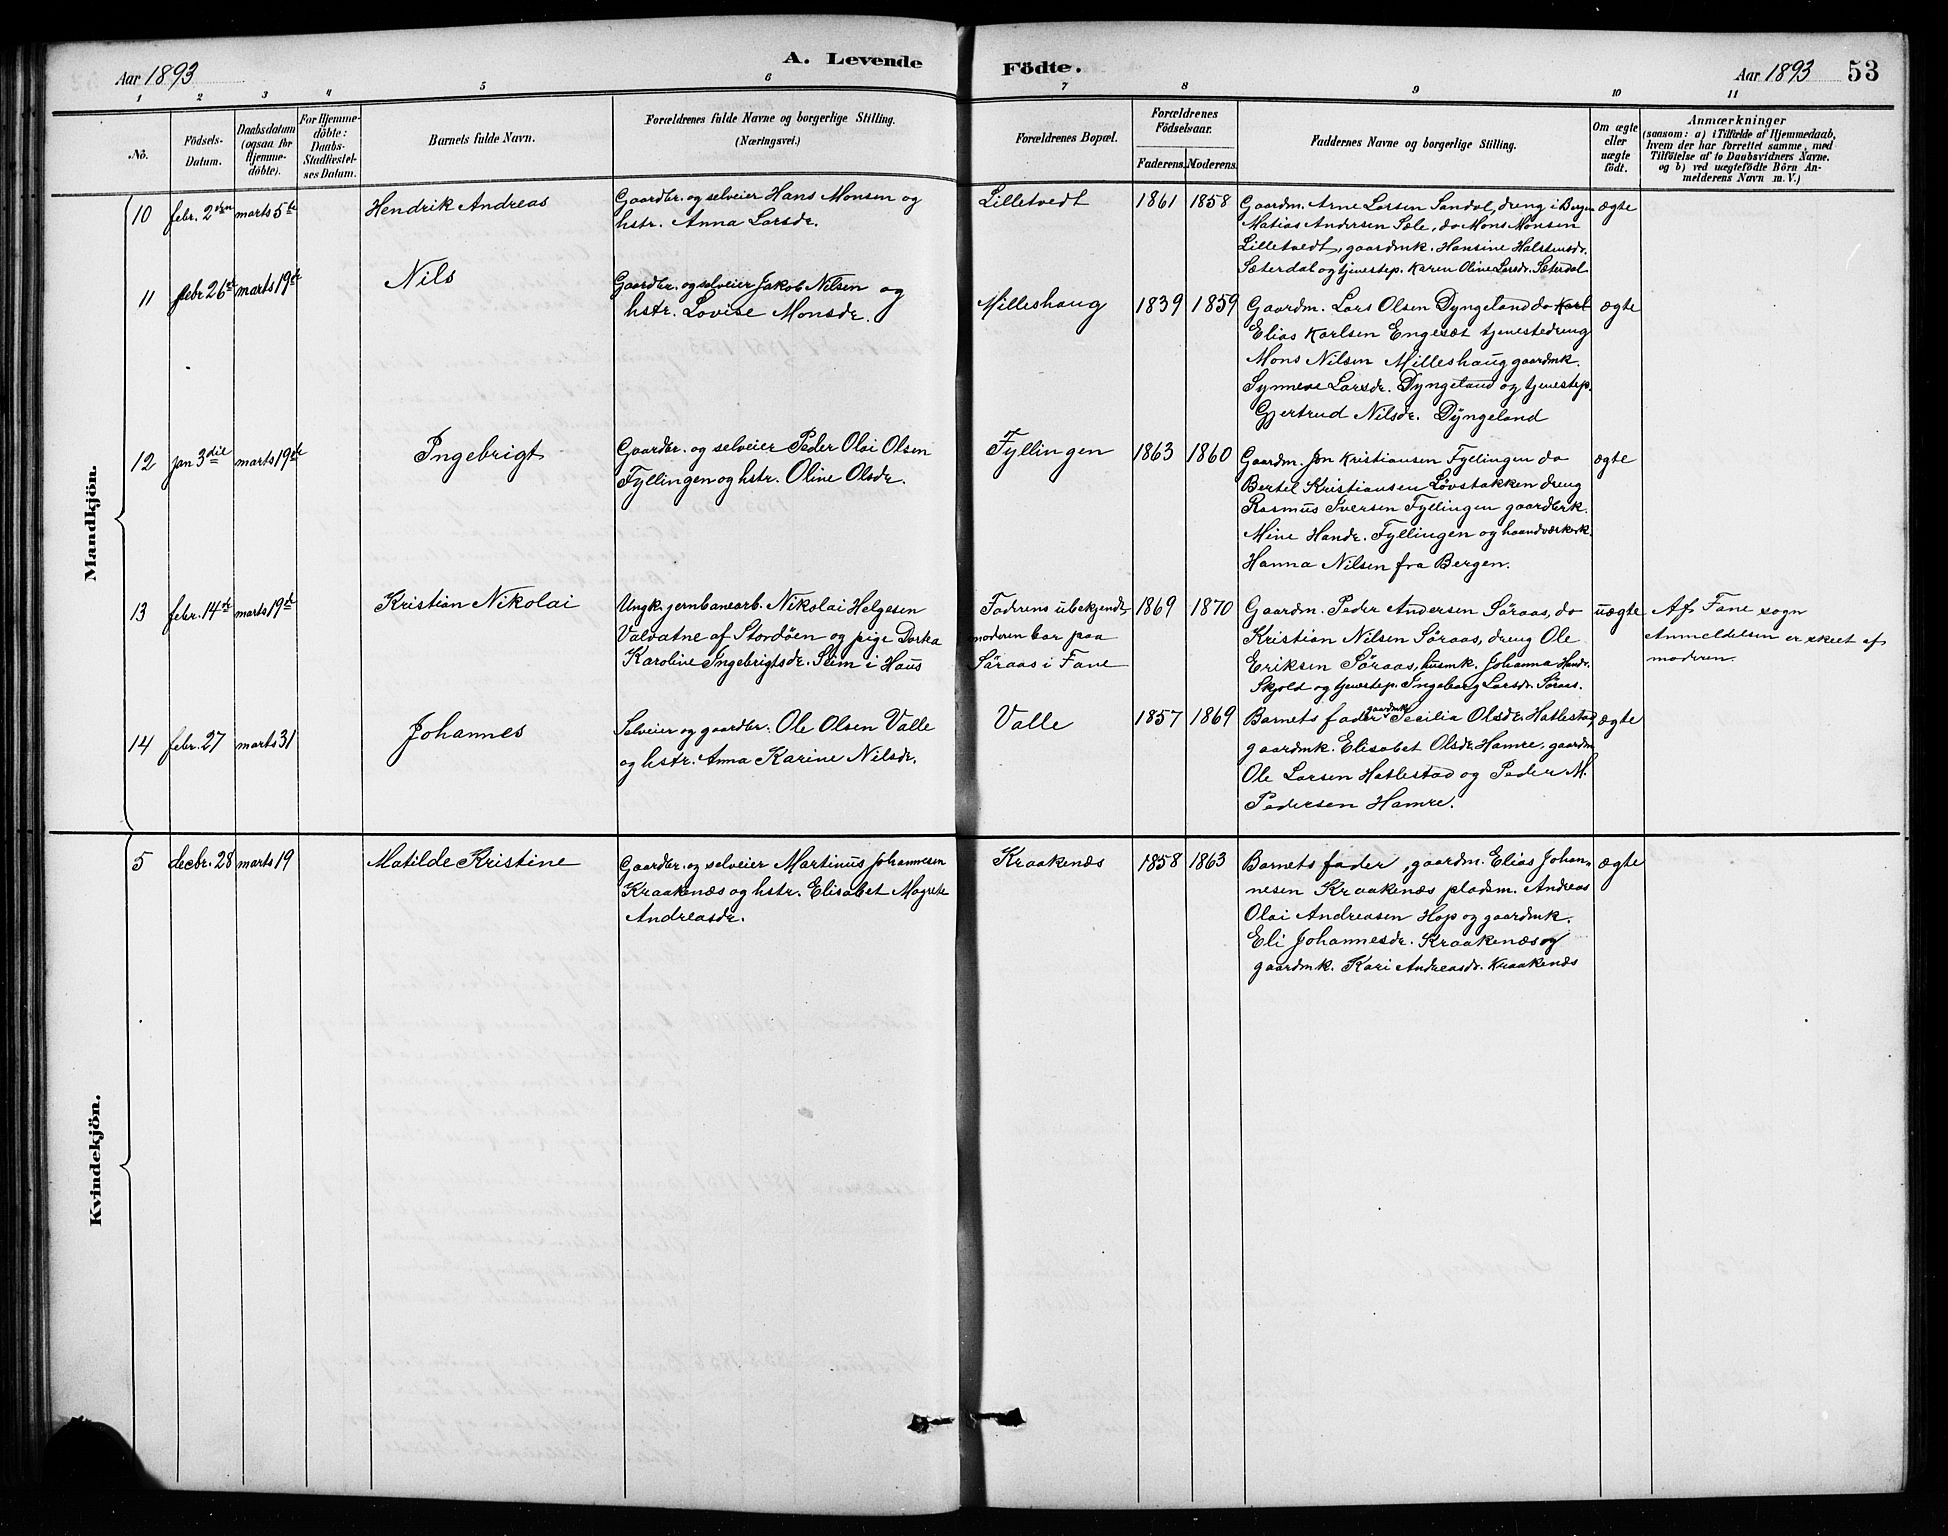 Aar 1893
A. Levende Födte.
Aar 1893 53
1 2 3 4 5 6 7 8 9 10 11
No.
Födsels-Datum.
Daabsdatum (ogsaa for Hjemme-döbte).
For Hjemme-döbte: Daabs-Stadfæstel-ses Datum.
Barnets fulde Navn.
Forældrenes fulde Navne og borgerlige Stilling.
(Næringsvei.)
Forældrenes Bopæl.
Forældrenes Födselsaar.
Faderens. Moderens.
Faddernes Navne og borgerlige Stilling.
Om ægte eller uægte födt.
Anmærkninger
(saasom: a) i Tilfælde af Hjemmedaab,
hvem der har forrettet samme, med
Tilföielse af to Daabsvidners Navne.
og b) ved uægtefödte Börn An-
melderens Navn m. V.)
Mandkjön.
10 febr. 2den marts 5te
Hendrik Andreas
Gaardbr. og selveier Hans Monsen og
hstr. Anna Larsdr.
Lilletvedt
1861 1858
Gaardm. Arne Larsen Sandal, dreng i Bergen
Matias Andersen Sæle, do Mons Monsen
Lilletvedt, gaardmk. Hansine Halstensdr.
Sæterdal og tjenestep. Karen Oline Larsdr. Sæterdal
ægte
11 febr 26de marts 19de
Nils
Gaardbr. og selveier Jakob Nilsen og
hstr. Lovise Monsdr.
Milleshaug
1839 1859
Gaardm. Lars Olsen Dyngeland do Karl
Elias Karlsen Engesæt tjenestedreng
Mons Nilsen Milleshaug gaardmk.
Synneve Larsdr. Dyngeland og tjenestep.
Gjertrud Nilsdr. Dyngeland
ægte
12 jan 3die marts 19de
Ingebrigt
Gaardbr. og selveier Peder Olai Olsen
Fyllingen og hstr. Oline Olsdr.
Fyllingen
1863 1860
Gaardm. Jon Kristiansen Fyllingen do
Bertel Kristiansen Løvstakken dreng
Rasmus Iversen Fyllingen gaardbrk.
Mine Hansdr. Fyllingen og haandværkerk.
Hanna Nilsen fra Bergen.
ægte
13 febr. 14de marts 19de
Kristian Nikolai
Ungk. jernbanearb. Nikolai Helgesen
Valvatne af Stordöen og pige Dorka
Karoline Ingebrigtsdr. Seim i Haus
Faderens ubekjendt,
moderen bor paa
Söraas i Fane
1869 1870
Gaardm. Peder Andersen Söraas, do
Kristian Nilsen Söraas, dreng Ole
Eriksen Söraas, husmk. Johanna Hansdr.
Skjold og tjenestep. Ingeborg Larsdr. Söraas.
uægte
Af Fane sogn
Anmeldelsen er skeet af
moderen.
14 febr. 27 marts 31
Johannes
Selveier og gaardbr. Ole Olsen Valle
og hstr. Anna Karine Nilsdr.
Valle
1857 1869
Barnets fader gaardmk. Cecilia Olsdr. Hatlestad
gaardmk. Elisabet Olsdr. Hamre, gaardm
Ole Larsen Hatlestad og Peder M.
Pedersen Hamre.
ægte
Kvindekjön.
5 decbr. 28 marts 19
Matilde Kristine
Gaardbr. og selveier Martinus Johannesen
Kraakenæs og hstr. Elisabet Magrete
Andreasdr.
Kraakenæs
1858 1863
Barnets fader, gaardm. Elias Johan-
nesen Kraakenæs pladsm. Andreas
Olai Andreasen Hop og gaardmk.
Eli Johannesdr. Kraakenæs og
gaardmk. Kari Andreasdr. Kraakenæs
ægte